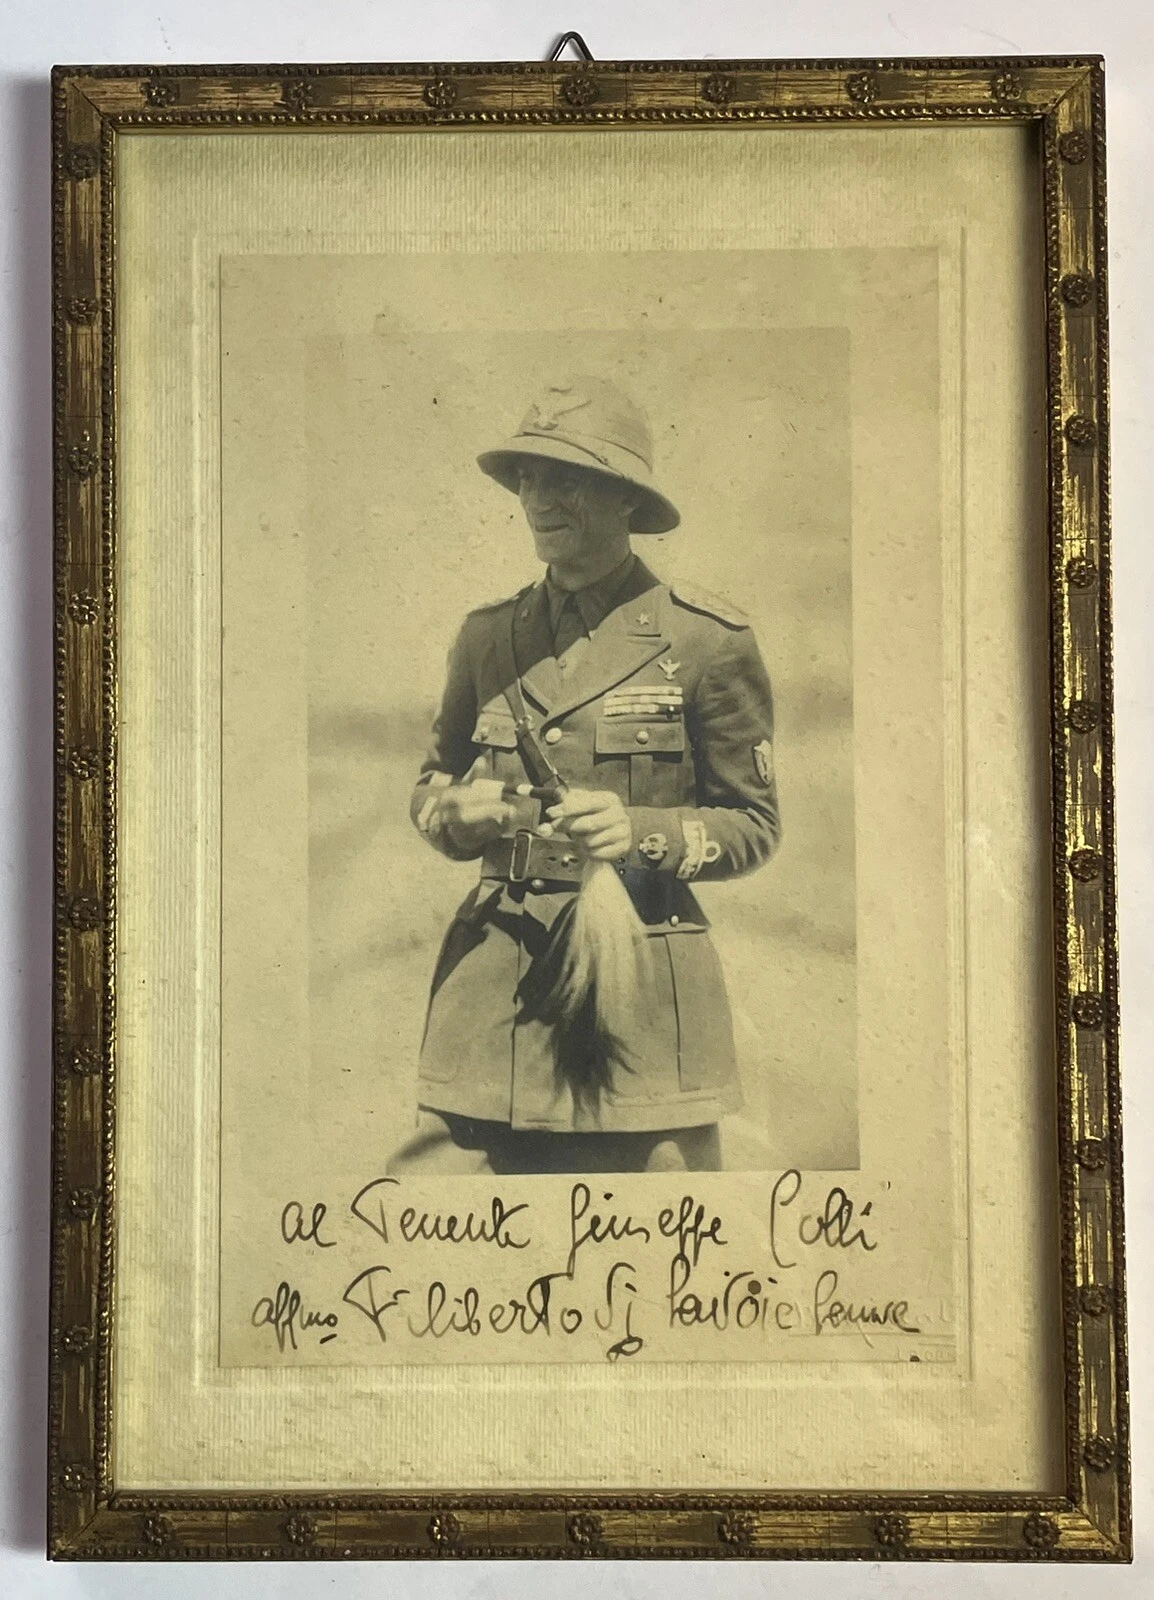 al Tenente Giuseppe Colli
affmo Filiberto di Savoia Genova